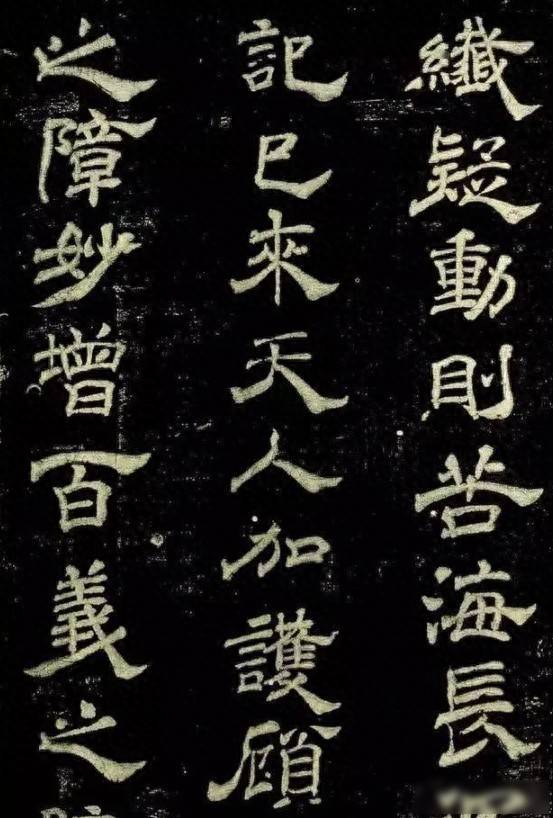 纖疑動則苦海長
記已來天人加護顧
之障妙增百義之